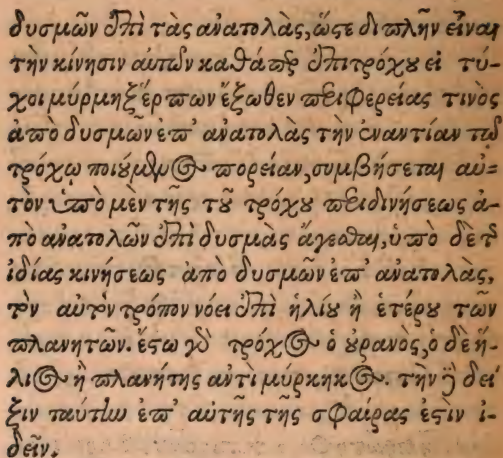 δυσμῶν ἐπὶ τὰς ἀνατολὰς, ὥστε διπλῆν εἶναι
τὴν κίνησιν αὐτῶν καθάπερ ἐπὶ τρόχου εἰ τύ-
χοι μύρμηξ ἕρπων ἔξωθεν περιφερείας τινὸς
ἀπὸ δυσμῶν ἐπ' ἀνατολὰς τὴν ἐναντίαν τῷ
τρόχῳ ποιούμενος πορείαν, συμβήσεται αὐ=
τὸν ὑπὸ μὲν τῆς τοῦ τρόχου περιδινήσεως ἀ-
πὸ ἀνατολῶν ἐπὶ δυσμὰς ἄγεσθαι, ὑπὸ δὲ τῆς
ἰδίας κινήσεως ἀπὸ δυσμῶν ἐπ' ἀνατολὰς,
τὸν αὐτὸν τρόπον νόει ἐπὶ ἡλίου ἢ ἑτέρου τῶν
πλανητῶν. ἔστω γὰρ τρόχος ὁ οὐρανὸς, ὁ δὲ ἥ-
λιος ἢ πλανήτης ἀντὶ μύρκηκος. τὴν δὲ δεῖ
ξιν ταύτην ἐπ' αὐτῆς τῆς σφαίρας ἐστὶν ἰ-
δεῖν.